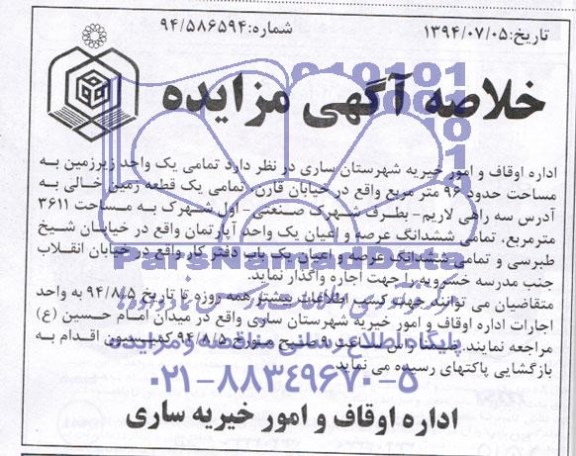 تاریخ:۱۳۹۴/۰۷/۰۵
شماره:۹۴/۵۸۶۵۹۴
خلاصه آگهی مزایده
اداره اوقاف و امور خیریه شهرستان ساری در نظر دارد تمامی یک واحد زیرزمین به
مساحت حدود ۹۶ متر مربع واقع در خیابان قارن، تمامی یک قطعه زمین خالی به
آدرس سه راهی لاریم- بطرف شهرک صنعتی- اول شهرک به مساحت ۳۶۱۱
مترمربع، تمامی ششدانگ عرصه و اعیان یک واحد آپارتمان واقع در خیابان شیخ
طبرسی و تمامی ششدانگ عرصه و اعیان یک باب دفتر کار واقع در خیابان انقلاب
جنب مدرسه خسرویه را جهت اجاره واگذار نماید.
متقاضیان می توانند جهت کسب اطلاعات بیشتر همه روزه تا تاریخ ۹۴/۸/۵ به واحد
اجارات اداره اوقاف و امور خیریه شهرستان ساری واقع در میدان امام حسین (ع)
مراجعه نمایند. ضمنا راس ساعت ۹ صبح مورخ ۹۴/۸/۵ کمیسیون اقدام به
بازگشایی پاکتهای رسیده می نماید.
اداره اوقاف و امور خیریه ساری
ParsNamadData
پایگاه اطلاع رسانی مناقصه و مزایده
۰۲۱-۸۸۳۴۹۶۷۰-۵